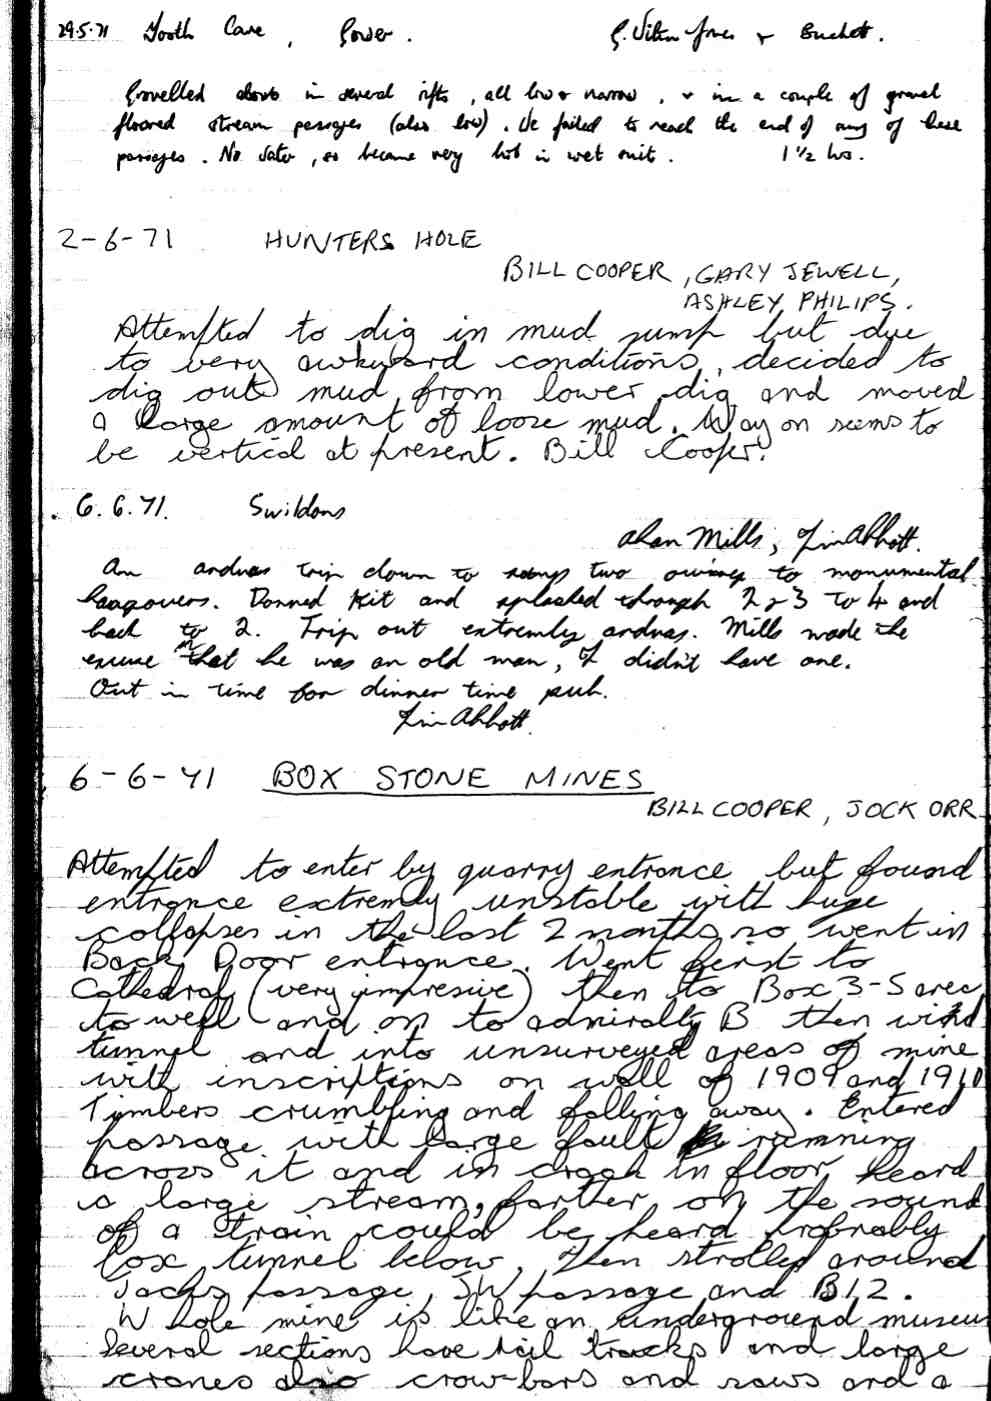 29.5.71 Tooth Cave, Gower. G. Wilton-Jones + Buckett.
Grovelled about in several rifts, all low + narrow, + in a couple of gravel
floored stream passages (also low). We failed to reach the end of any of these
passages. No water, so became very hot in wet suit. 1 1/2 hrs.
2-6-71 HUNTERS HOLE
BILL COOPER, GARY JEWELL,
ASHLEY PHILIPS.
Attempted to dig in mud sump but due
to very awkward conditions, decided to
dig out mud from lower dig and moved
a large amount of loose mud. Way on seems to
be vertical at present. Bill Cooper.
6.6.71. Swildons
Alan Mills, Jim Abbott.
An arduas trip down to sump two owing to monumental
hangovers. Donned kit and splashed through 2 & 3 to 4 and
back to 2. Trip out extremly arduas. Mills made the
excuse that he was an old man, I didn't have one.
Out in time for dinner time pub.
Jim Abbott.
6-6-71 BOX STONE MINES
BILL COOPER, JOCK ORR
Attempted to enter by quarry entrance but found
entrance extremly unstable with huge
collapses in the last 2 months so went in
Back Door entrance. Went first to
Cathedral (very impresive) then to Box 3-5 area
to well and on to admiralty B then wind
tunnel and into unsurveyed areas of mine
with inscriptions on wall of 1909 and 1910
Timbers crumbling and falling away. Entered
passage with large fault running
across it and in crack in floor heard
a large stream, farther on the sound
of a train could be heard probrably
box tunnel below, then strolled around
Jacks passage, SW passage and B12.
Whole mine is like an underground museum
Several sections have rail tracks and large
cranes also crow-bars and saws and a